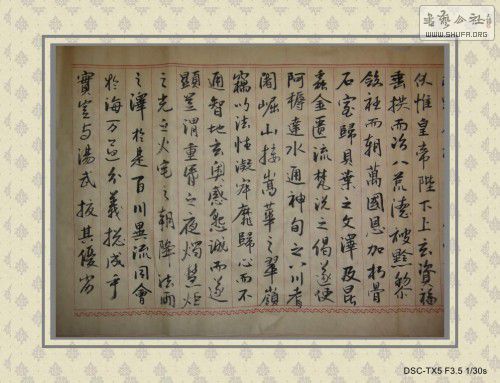 书艺公社
WWW.SHUFA.ORG
伏惟皇帝陛下上玄資福
垂拱而治八荒德被黔黎
斂衽而朝萬國恩加朽骨
石室歸貝葉之文澤及昆
蟲金匱流梵說之偈遂使
阿耨達水通神甸之八川耆
闍崛山接嵩華之翠嶺
竊以法性凝寂靡歸心而不
通智地玄奧感懇誠而遂
顯豈謂重昏之夜燭慧炬
之光火宅之朝降法雨
之澤於是百川異流同會
於海万區分義揔成乎
實豈与湯武挍其優劣
DSC-TX5 F3.5 1/30s